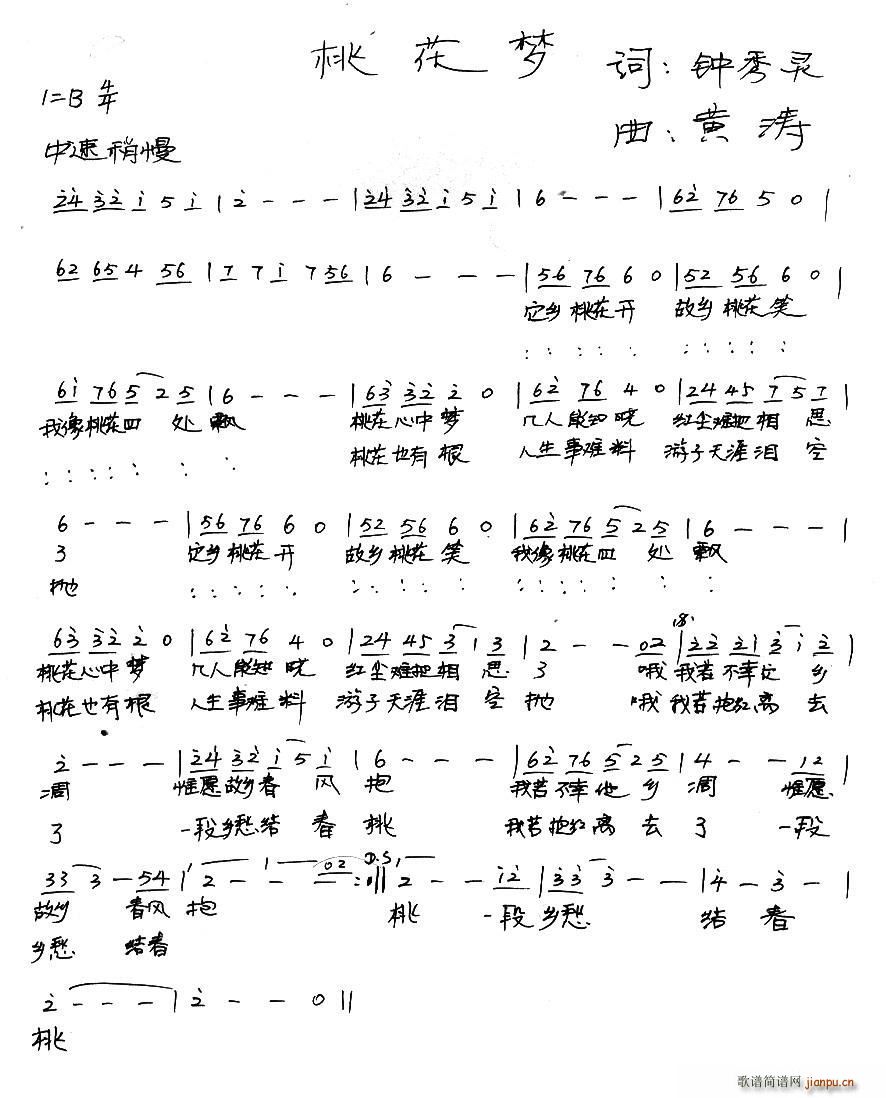 桃花梦
词:钟秀灵
1=B 4/4
曲:黄涛
中速稍慢
24 32 1 5 1 | 2 - - - | 24 32 1 5 1 | 6 - - - | 62 76 5 0 |
62 65 4 56 | 7 7 1 7 56 | 6 - - - | 56 76 6 0 | 52 56 6 0 |
它乡桃花开 故乡桃花笑
: : : : : : : : : :
61 76 5 2 5 | 6 - - - | 63 32 2 0 | 62 76 4 0 | 24 45 7 5 7
我像桃花四 处飘 桃花心中梦 几人能知晓 红尘难把相 思
: : : : : : : 桃花也有根 人生事难料 游子天涯泪 空
6 - - - | 56 76 6 0 | 52 56 6 0 | 62 76 5 2 5 | 6 - - - |
了 它乡桃花开 故乡桃花笑 我像桃花四 处 飘
抛 : : : : : : : : : : : : : : : : :
63 32 2 0 | 62 76 4 0 | 24 45 3 1 3 | 2 - - 02 | 22 21 3 1 2 |
桃花心中梦 几人能知晓 红尘难把相 思 了 哦 我若不幸它 乡
桃花也有根 人生事难料 游子天涯泪 空 抛 哦 我若抱红离 去
2 - - - | 24 32 1 5 1 | 6 - - - | 62 76 5 2 5 | 4 - - 12 |
凋 惟愿故乡春 风 抱 我若不幸他 乡 凋 惟愿
了 一段乡愁结 春 桃 我若抱红离 去 了 一段
33 3 - 54 | 2 - - - 02 :|| D.S. 2 - - 12 | 33 3 - - | 4 - 3 - |
故乡 春风 抱 桃 一段 乡愁 结 春
乡愁 结春
2 - - - | 2 - - 0 ||
桃
歌谱简谱网
jianpu.cn